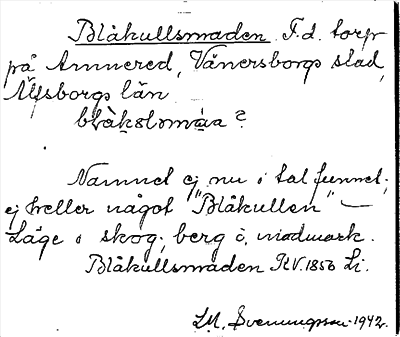 Blåkullsmaden F.d. torp
på Annered, Vänersborgs stad,
Älfsborgs län
blåkolsmáa?
Namnet ej nu i tal funnet;
ej heller något "Blåkullen" —
Läge i skog; berg o. madmark.
Blåkullsmaden RV. 1856 Li.
LM. Svenungsson 1942.